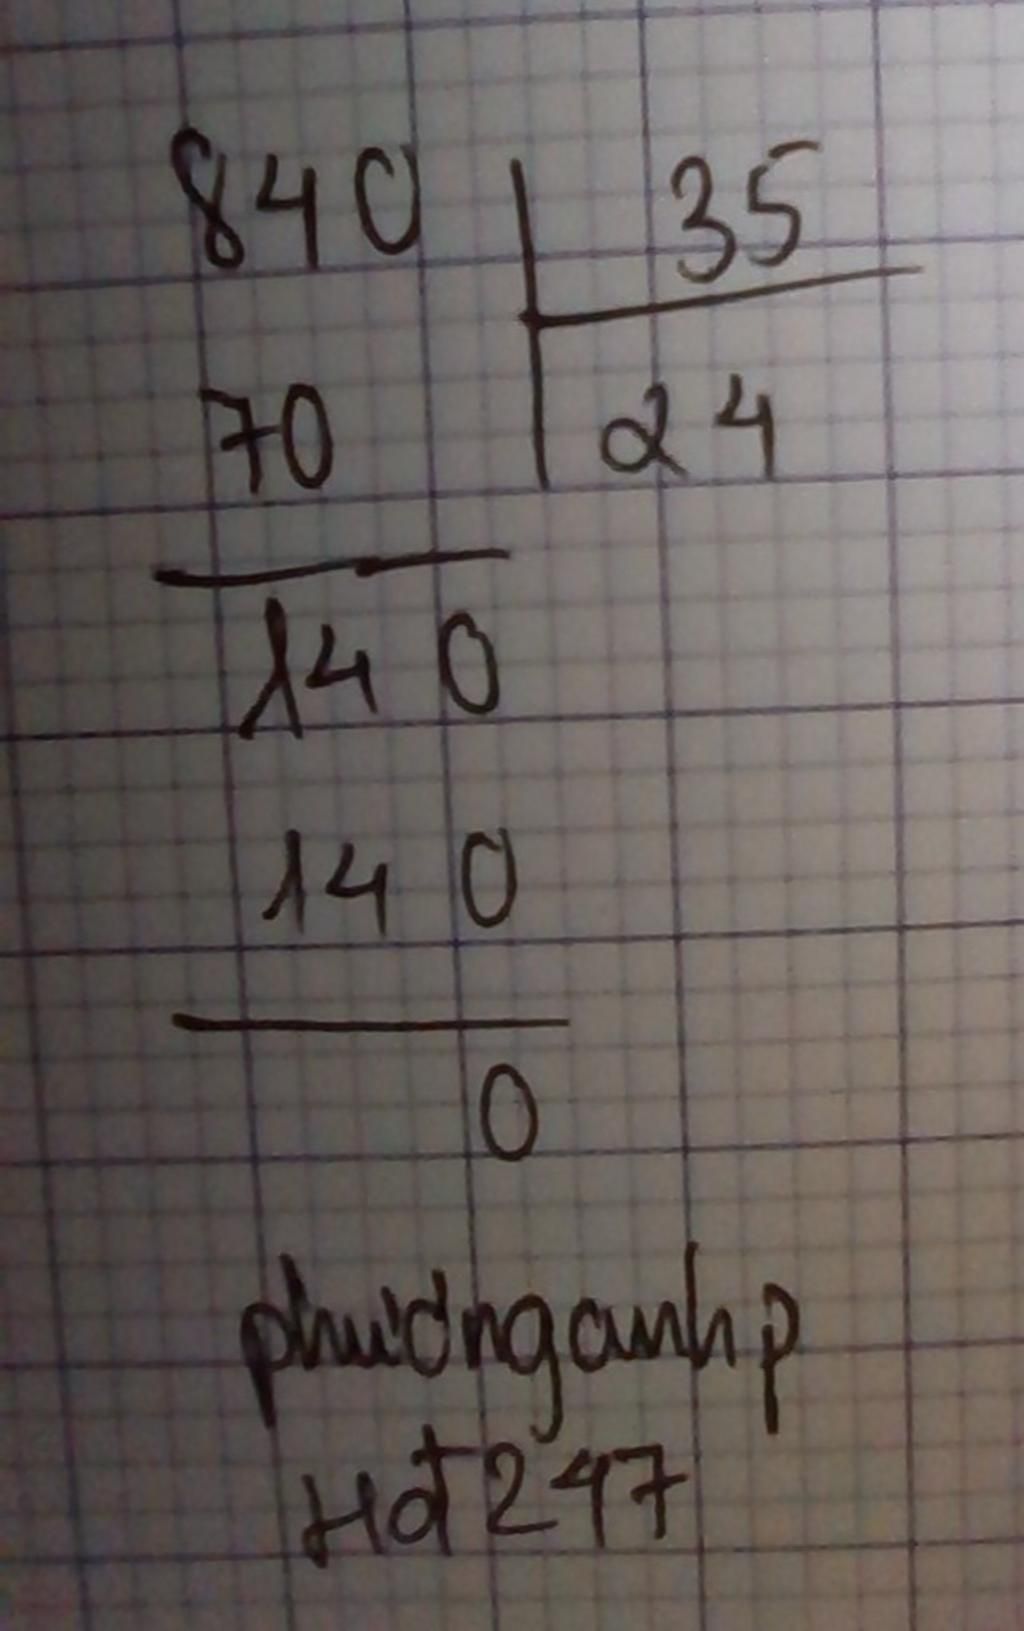 840 35
70 24
140
140
0
phươnganhp
Hd247